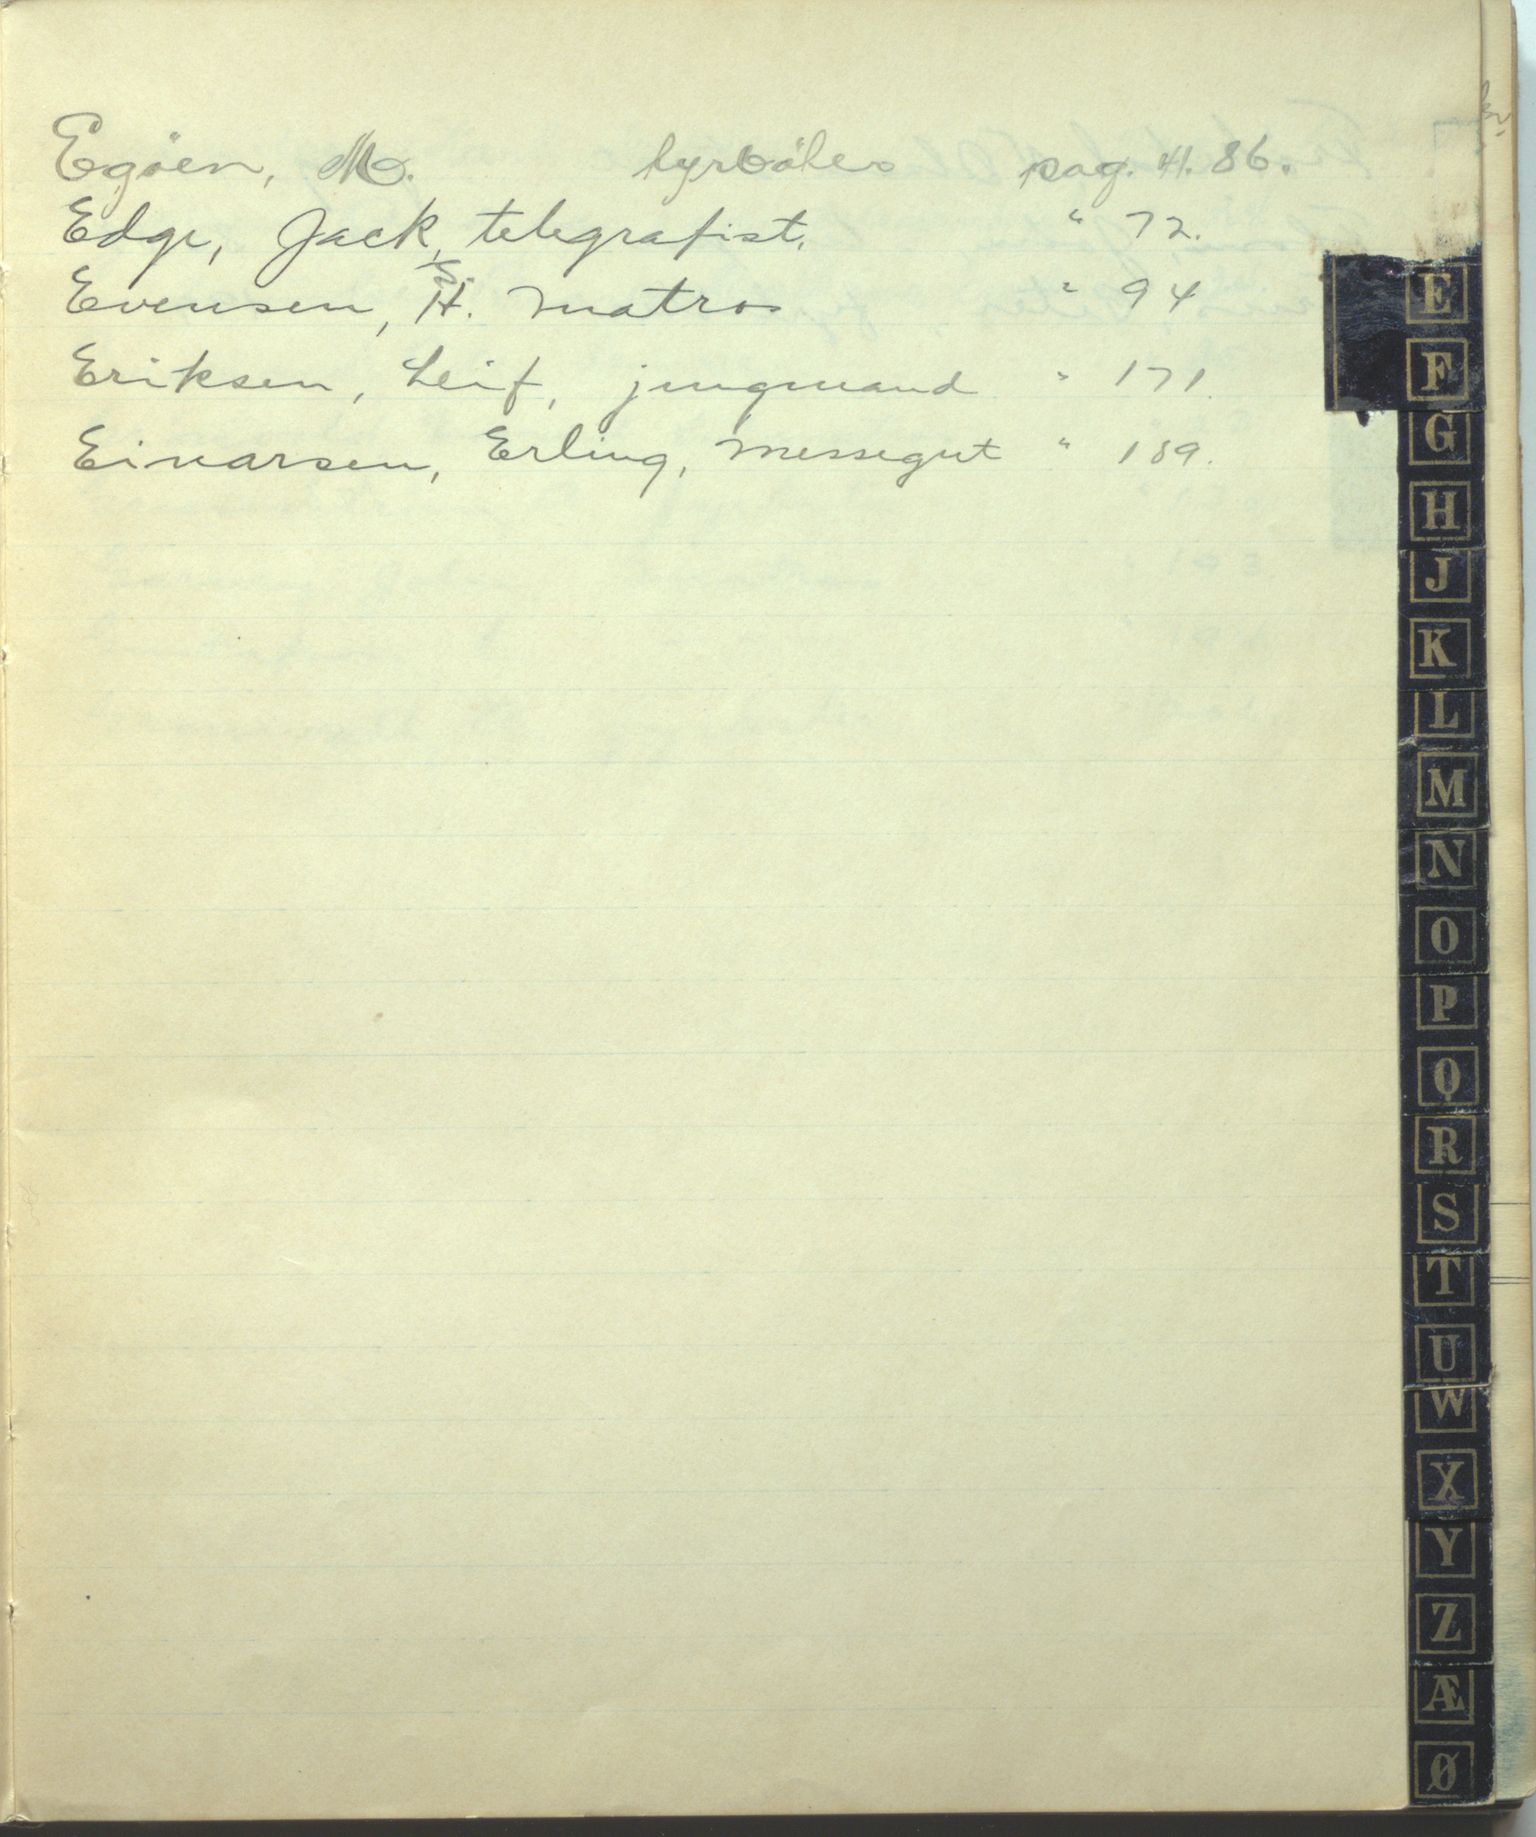 Egöen, M. fyrböter pag. 41. 86.
Edge, Jack, telegrafist. " 72.
Evensen, S. H. matros " 94
Eriksen, Leif, jungmand " 171.
Eivarsen, Erling, messegut " 189.
E
F
G
H
J
K
L
M
N
O
P
Q
R
S
T
U
W
X
Y
Z
Æ
Ø